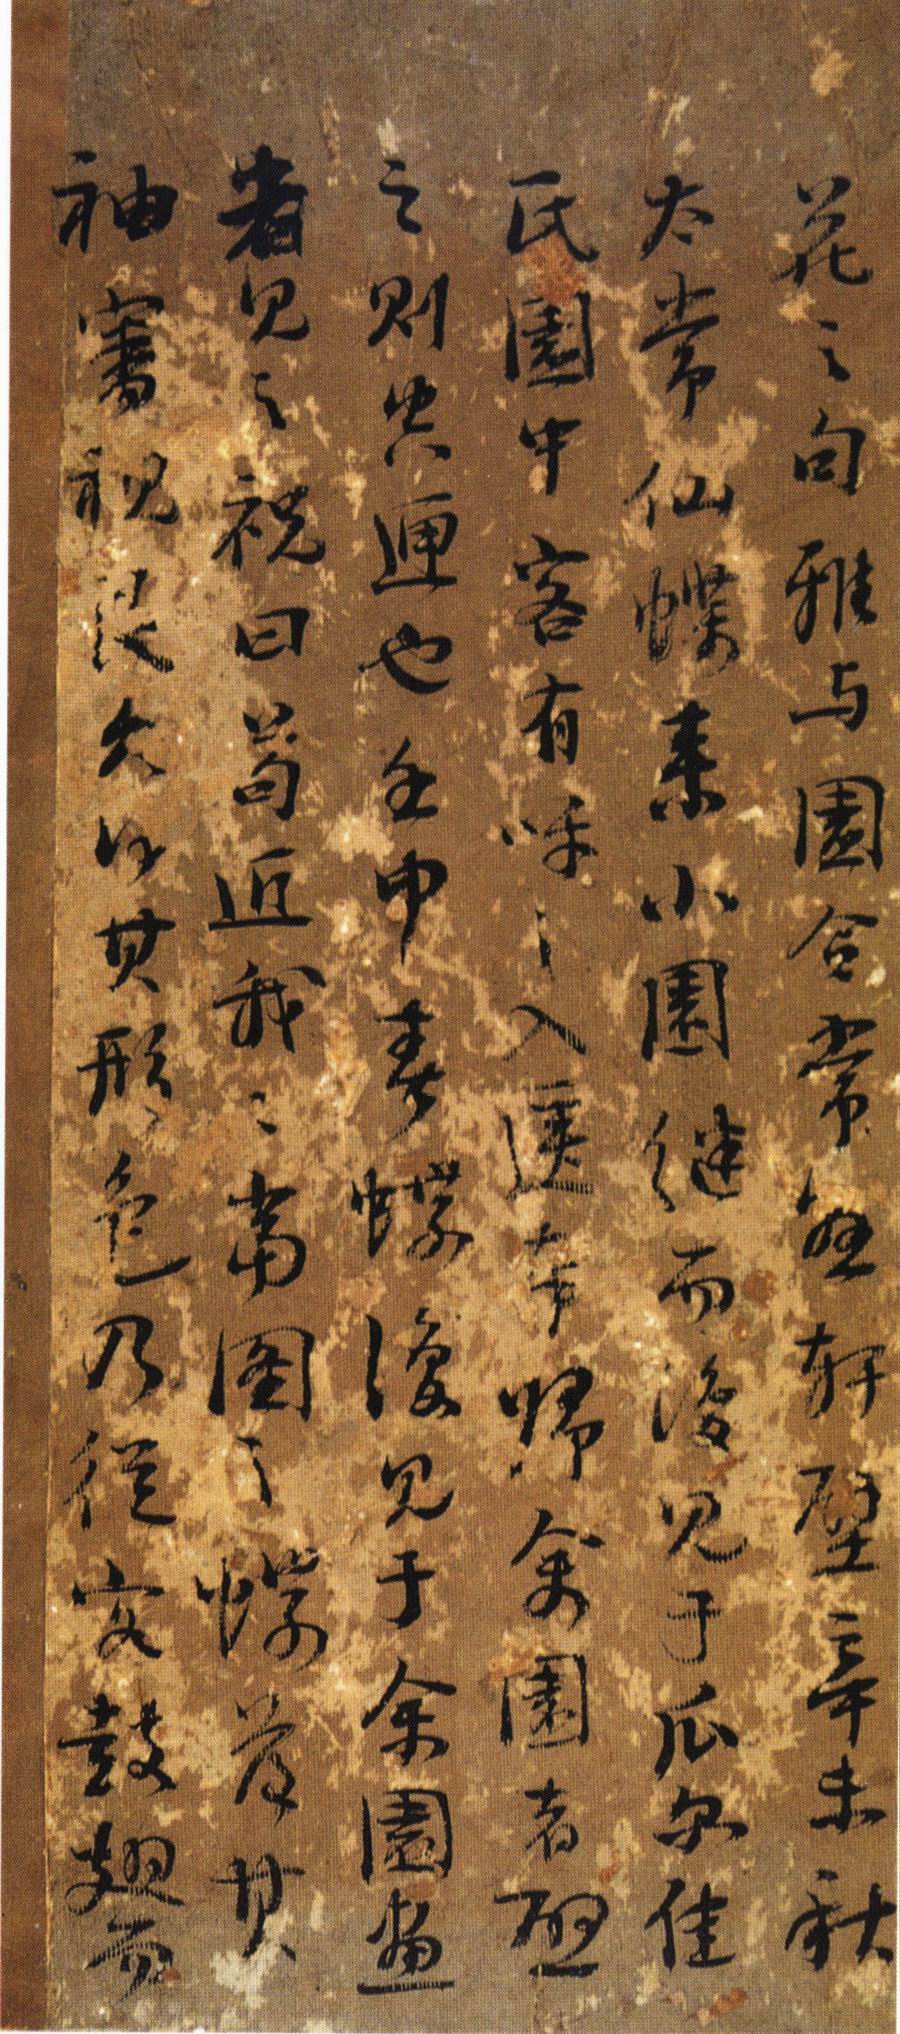 花之句雅与園合常懸軒壁辛未秋
太常仙蝶来小園继而復见于瓜尔佳
氏園中客有呼之入匣奉歸余園者啟
之则空匣也壬申春蝶復见于余園畫
者见之祝曰苟近我〻當图之蝶落其
袖審視良久得其形色乃從容鼓翅而